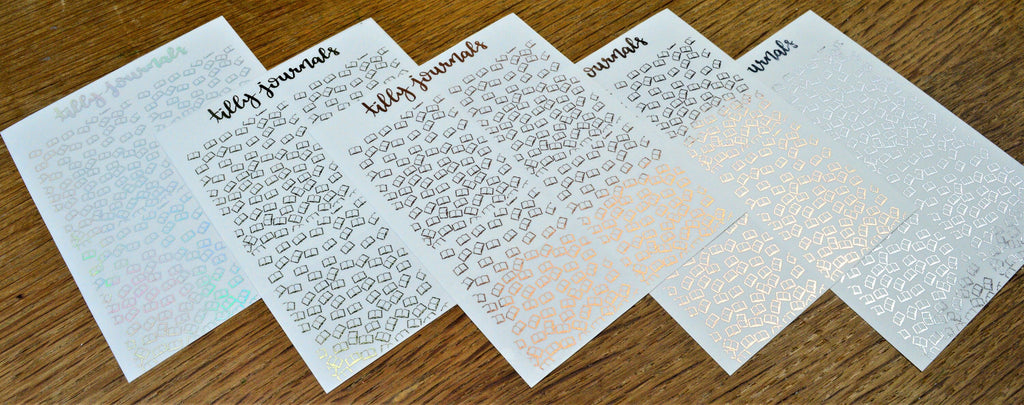 tilly journals
tilly journals
tilly journals
ournals
urnals